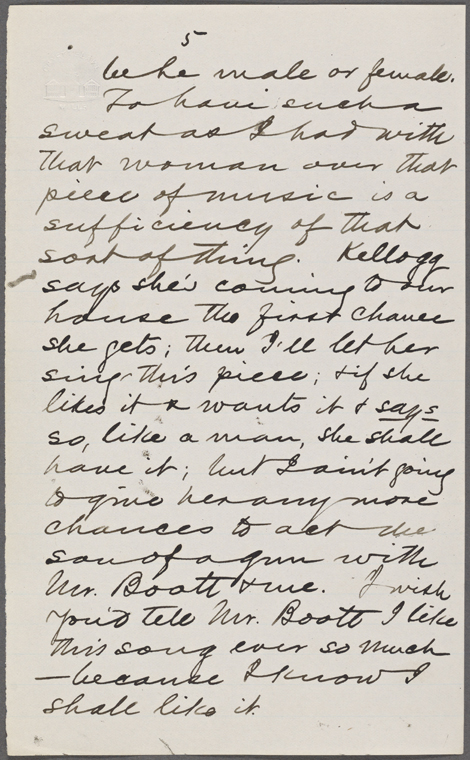 5
be he male or female.
To have such a
sweat as I had with
that woman over that
piece of music is a
sufficiency of that
sort of thing. Kellogg
says she's coming to our
house the first chance
she gets; then I'll let her
sing this piece; & if she
likes it & wants it & says
so, like a man, she shall
have it; but I ain't going
to give her any more
chances to act the
son of a gun with
Mr. Boott & me. I wish
you'd tell Mr. Boott I like
this song ever so much
—because I know I
shall like it.